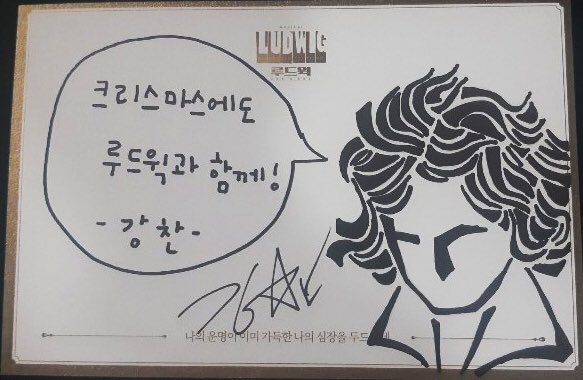 LUDWIG
루드윅
크리스마스에도
루드윅과 함께!
- 강찬 -
나의 운명이 이미 가득한 나의 심장을 두드